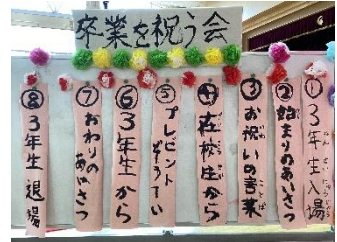 卒業を祝う会
①3年生入場
②始まりのあいさつ
③お祝いの言葉
④在校生から
⑤プレゼントぞうてい
⑥3年生から
⑦おわりのあいさつ
⑧3年生退場